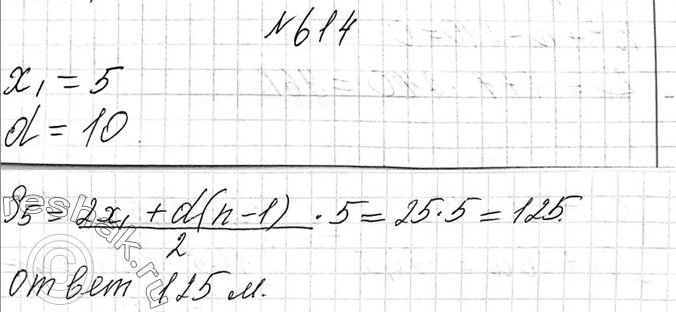 №614
x₁ = 5
d = 10.
S₅ = (2x₁ + d(n-1))/2 · 5 = 25·5 = 125.
ответ 125 м.
reshak.ru